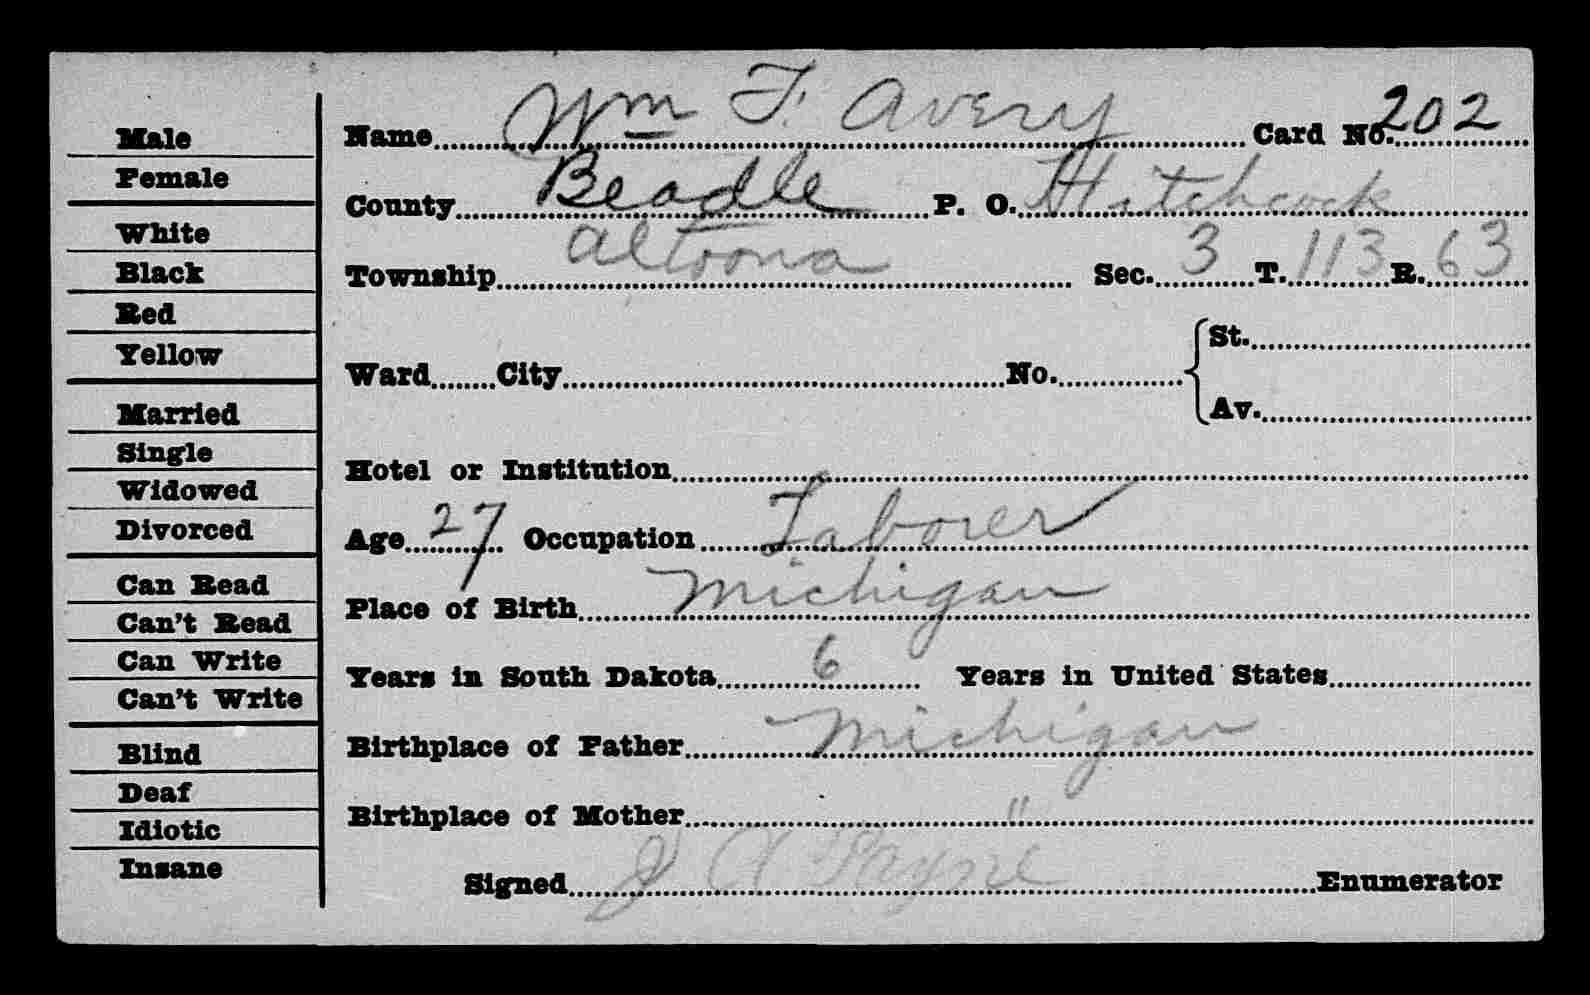 Male
Female
White
Black
Red
Yellow
Married
Single
Widowed
Divorced
Can Read
Can't Read
Can Write
Can't Write
Blind
Deaf
Idiotic
Insane
Name Wm F. Avery Card No. 202
County Beadle P. O. Hitchcock
Township Altoona Sec. 3 T. 113 R. 63
Ward City No. St.
Av.
Hotel or Institution
Age 27 Occupation Laborer
Place of Birth Michigan
Years in South Dakota 6 Years in United States
Birthplace of Father Michigan
Birthplace of Mother "
Signed J A Payne Enumerator